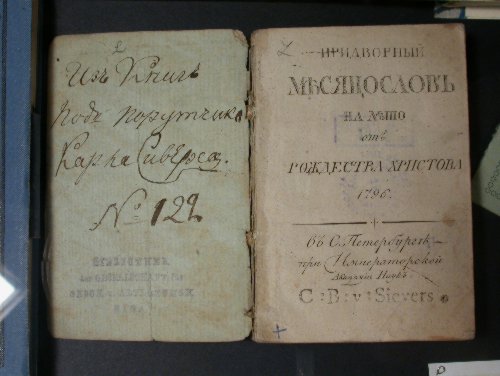 Изъ Книгъ
Подъ порутчика
Карла Сиверса.
№ 122
BIBLIOTHEK
der GESELLSCHAFT für
RIGA
ПРИДВОРНЫЙ
МѢСЯЦОСЛОВЪ
НА ЛѢТО
отъ
РОЖДЕСТВА ХРИСТОВА
1796.
Въ С. Петербургѣ,
при Императорской
Академіи Наукъ
C : B : v : Sievers